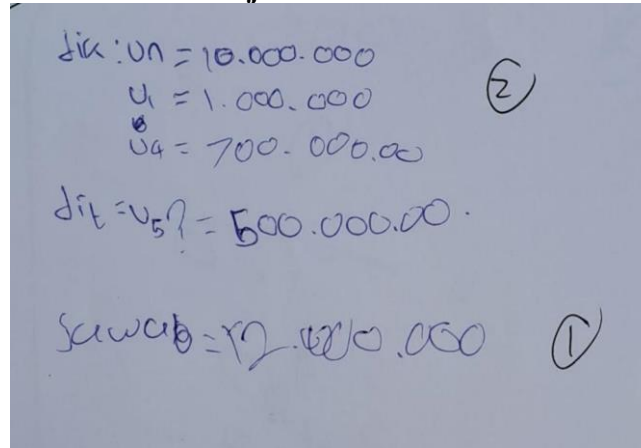 dik : Un = 10.000.000
②
U1 = 1.000.000
U4 = 700.000.00
dit = U5? = 500.000.00.
Jawab = 12.400.000
①